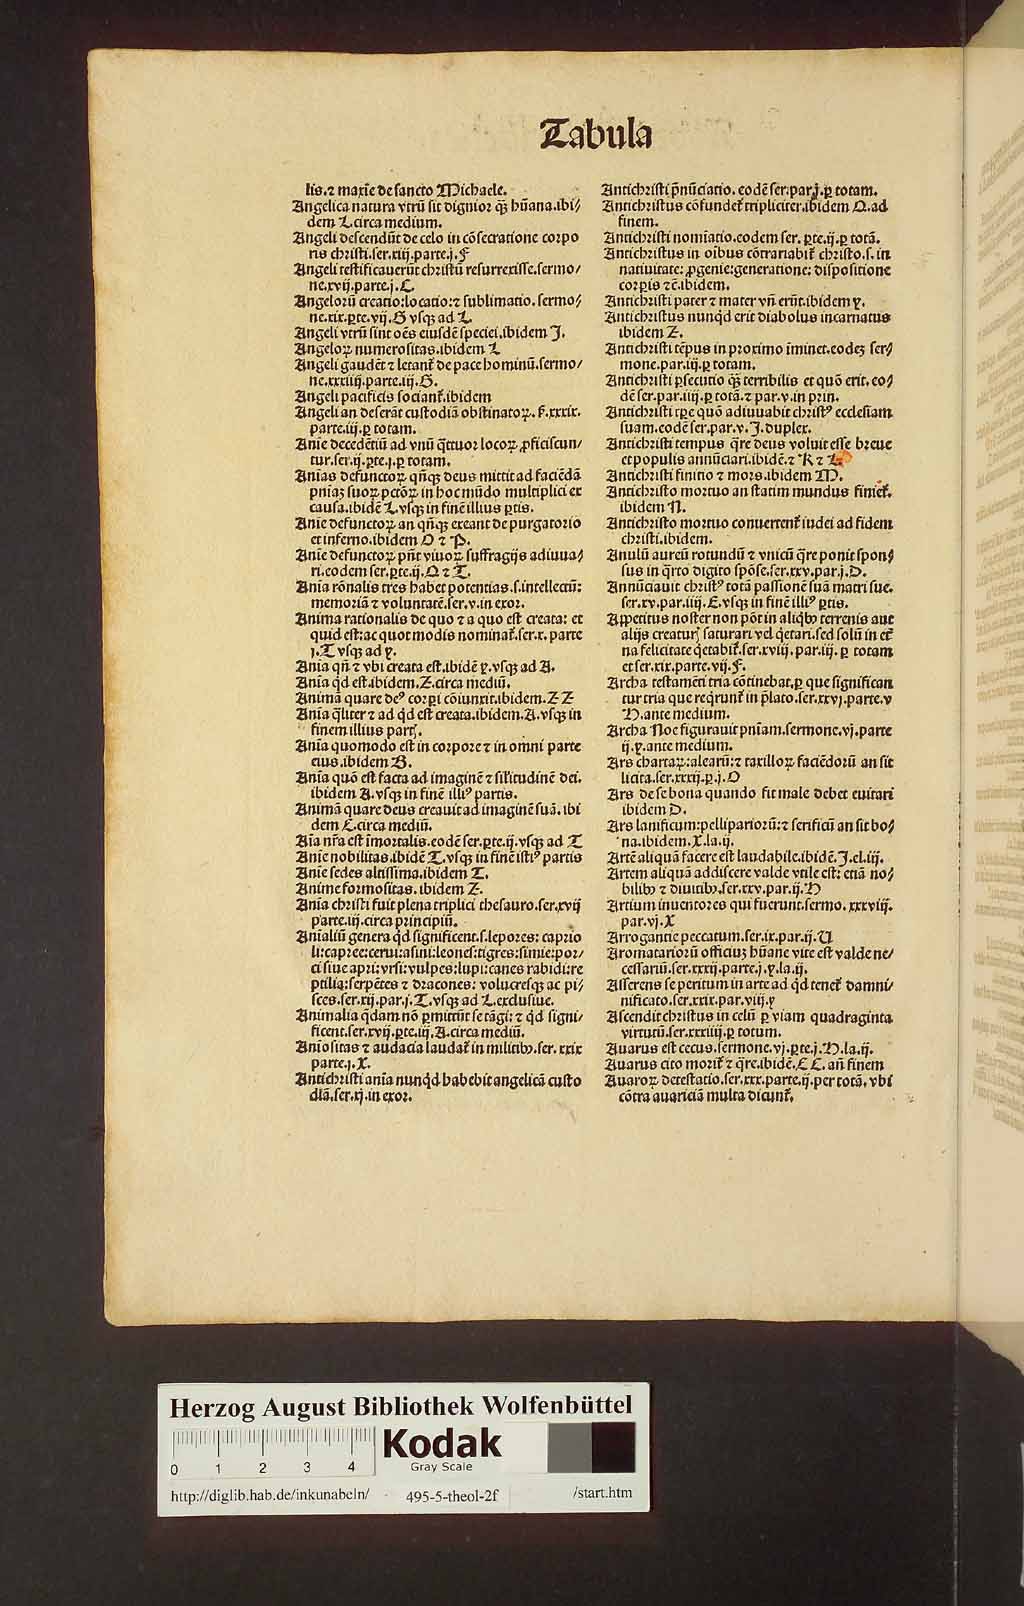 Tabula
lis.⁊ maxīe de sancto Michaele.
Angelica natura vtrū sit dignior qȝ hūana.ibi/
dem L.circa medium.
Angeli descendūt de celo in cōsecratione corpo
ris christi.ser.xiij.parte.j.F
Angeli testificauerūt christū resurrexisse.sermo/
ne.xvij.parte.j.C.
Angelorū creatio:locatio:⁊ sublimatio. sermo/
ne.xix.ꝑte.vij.G vsqȝ ad L.
Angeli vtrū sint oēs eiusdē speciei.ibidem J.
Angeloꝝ numerositas.ibidem L
Angeli gaudēt ⁊ letant᷑ de pace hominū.sermo/
ne.xxxiiij.parte.iij.G.
Angeli pacificis sociant᷑.ibidem
Angeli an deserāt custodiā obstinatoꝝ. ẜ.xxxix.
parte.iij.ꝑ totam.
Anie decedētiū ad vnū q̄ttuor locoꝝ ꝓficiscun/
tur.ser.ij.ꝑte.j.ꝑ totam.
Anias defunctoꝝ qn̄qȝ deus mittit ad faciēdā
pniaȝ suoꝝ pctōꝝ in hoc mūdo multiplici ex
causa.ibidē L.vsqȝ in finē illius ꝑtis.
Anie defunctoꝝ an qn̄qȝ exeant de purgatorio
et inferno.ibidem O ⁊ P.
Anie defunctoꝝ pn̄t viuoꝝ suffragijs adiuua/
ri.eodem ser.ꝑte.ij.Q ⁊ T.
Ania rōnalis tres habet potentias.s.intellectū:
memoriā ⁊ voluntatē.ser.v.in exor.
Anima rationalis de quo ⁊ a quo est creata: et
quid est:ac quot modis nominat᷑.ser.x. parte
j.T vsqȝ ad y.
Ania qn̄ ⁊ vbi creata est.ibidē y.vsqȝ ad A.
Ania qd est.ibidem.Z.circa mediū.
Animā quare deꝰ corpi cōiunxit.ibidem.Z Z
Anīa qliter ⁊ ad qd est creata.ibidem.A.vsqȝ in
finem illius part.
Anīa quomodo est in corpore ⁊ in omni parte
eius.ibidem B.
Anīa quō est facta ad imaginē ⁊ sil̓itudinē dei.
ibidem A.vsqȝ in finē illiꝰ partis.
Animā quare deus creauit ad imaginē suā. ibi
dem C.circa mediū.
Aīa nr̄a est īmortalis.eodē ser.ꝑte.ij.vsqȝ ad T
Anie nobilitas.ibidē T.vsqȝ in finē istiꝰ partis
Anie sedes altissima.ibidem T.
Anime formositas. ibidem Z.
Ania christi fuit plena triplici thesauro.ser.xvij
parte.iij.circa principiū.
Anialiū genera qd significent.s.lepores: caprio
li:capree:cerui:asini:leones:tigres:simie:por/
ci siue apri:vrsi:vulpes:lupi:canes rabidi:re
ptilia:serpētes ⁊ dracones: volucresqȝ ac pi/
sces.ser.xij.par.j.T.vsqȝ ad L.exclusiue.
Animalia qdam nō ꝑmittūt se tāgi: ⁊ qd signi/
ficent.ser.xvij.ꝑte.iij.A.circa mediū.
Aniositas ⁊ audacia laudat᷑ in militibꝰ.ser. xxix
parte.j.X.
Antichristi anīa nunqd habebit angelicā custo
diā.ser.xj.in exor.
Antichristi p̄nūciatio. eodē ser.par.j.ꝑ totam.
Antichristus cōfundet᷑ tripliciter.ibidem Q.ad
finem.
Antichristi nomīatio.eodem ser. ꝑte.ij.ꝑ totā.
Antichristus in oībus cōtrariabit᷑ christo.s. in
natiuitate: ꝓgenie:generatione: dispositione
corꝑis ⁊c̄.ibidem.
Antichristi pater ⁊ mater vn̄ erūt.ibidem y.
Antichristus nunqd erit diabolus incarnatus
ibidem Z.
Antichristi tēpus in proximo īminet.eodeȝ ser/
mone.par.iij.ꝑ totam.
Antichristi ꝑsecutio qȝ terribilis et quō erit. eo/
dē ser.par.iiij.ꝑ totā.⁊ par.v.in prin.
Antichristi tꝑe quō adiuuabit christꝰ ecclesiam
suam.eodē ser.par.v.J.duplex.
Antichristi tempus q̄re deus voluit esse breue
et populis annūciari.ibidē.⁊ K ⁊ L.
Antichristi finitio ⁊ mors.ibidem M.
Antichristo mortuo an statim mundus finiet᷑.
ibidem N.
Antichristo mortuo conuertent᷑ iudei ad fidem
christi.ibidem.
Anulū aureū rotundū ⁊ vnicū q̄re ponit spon/
sus in q̄rto digito spōse.ser.xxv.par.j.D.
Annūciauit christꝰ totā passionē suā matri sue.
ser.xv.par.iiij.C.vsqȝ in finē illiꝰ ꝑtis.
Appetitus noster non pōt in aliqbꝰ terrenis aut
alijs creatur᷑ saturari vel q̄etari.sed solū in et̄
na felicitate q̄etabit᷑.ser.xviij.par.iij.ꝑ totam
et ser.xix.parte.vij.F.
Archa testamēti tria cōtinebat.ꝑ que significan
tur tria que reqrunt᷑ in p̄lato.ser.xxvj.parte.v
H.ante medium.
Archa Noe figurauit pniam.sermone.vj.parte
ij.y.ante medium.
Ars chartaꝝ:alearū:⁊ taxilloꝝ faciēdorū an sit
licita.ser.xxxij.ꝑ.j.O
Ars de se bona quando fit male debet euitari
ibidem D.
Ars lanificum:pellipariorū:⁊ serificū an sit bo/
na.ibidem.X.la.ij.
Artē aliquā facere est laudabile.ibidē.J.el.iij.
Artem aliquā addiscere valde vtile est: etiā no/
bilibꝰ ⁊ diuitibꝰ.ser.xxv.par.ij.H
Artium inuentores qui fuerunt.sermo. xxxviij.
par.vj.X
Arrogantie peccatum.ser.ix.par.ij.U
Aromatariorū officiuȝ hūane vite est valde ne/
cessariū.ser.xxxij.parte.j.y.la.ij.
Asserens se peritum in arte ad qd tenet᷑ damni/
nificato.ser.xxix.par.viij.y
Ascendit christus in celū ꝑ viam quadraginta
virtutū.ser.xxxiiij.ꝑ totum.
Auarus est cecus.sermone.vj.ꝑte.j.H.la.ij.
Auarus cito morit᷑ ⁊ q̄re.ibidē.C C. an̄ finem
Auaroꝝ detestatio.ser.xxx.parte.ij.per totā. vbi
cōtra auariciā multa dicunt᷑.
Herzog August Bibliothek Wolfenbüttel
Kodak
Gray Scale
0 1 2 3 4
http://diglib.hab.de/inkunabeln/ 495-5-theol-2f /start.htm